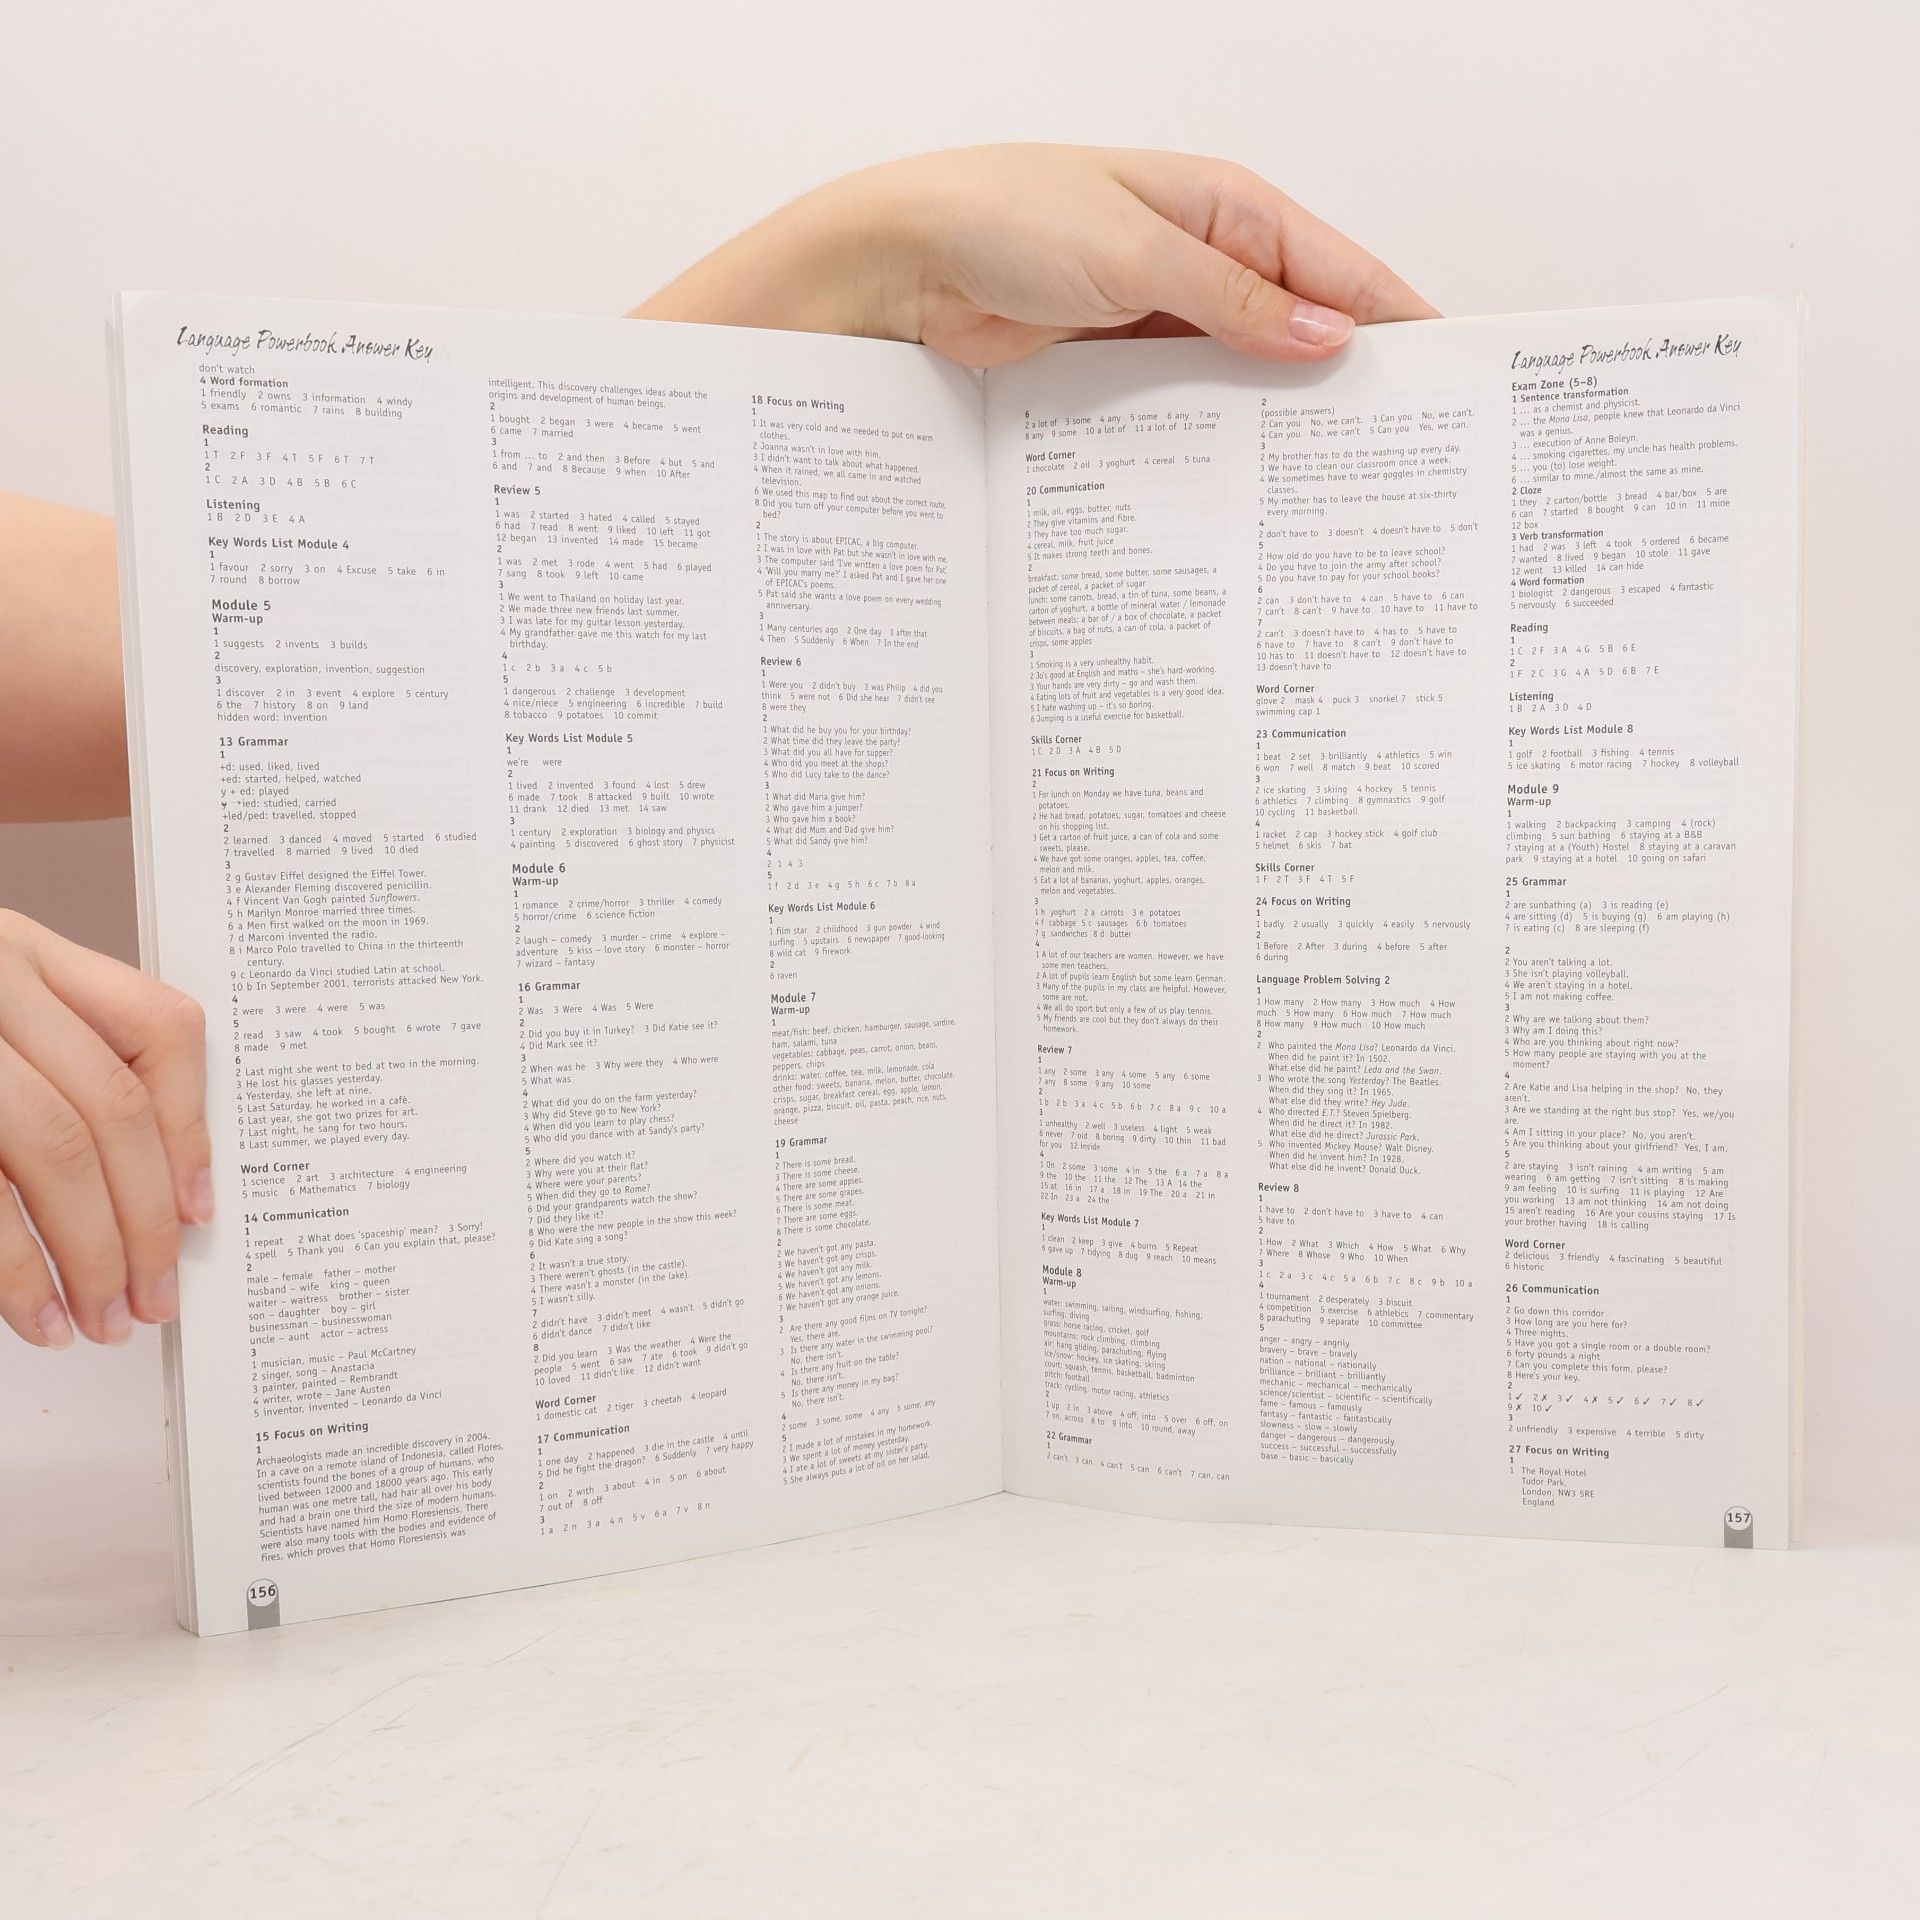 Language Powerbook Answer Key
don't watch
4 Word formation
1 friendly 2 owns 3 information 4 windy
5 exams 6 romantic 7 rains 8 building
Reading
1
1 T 2 F 3 F 4 T 5 F 6 T 7 T
2
1 C 2 A 3 D 4 B 5 B 6 C
Listening
1 B 2 D 3 E 4 A
Key Words List Module 4
1
1 favour 2 sorry 3 on 4 Excuse 5 take 6 in
7 round 8 borrow
Module 5
Warm-up
1
1 suggests 2 invents 3 builds
2
discovery, exploration, invention, suggestion
3
1 discover 2 in 3 event 4 explore 5 century
6 the 7 history 8 on 9 land
hidden word: invention
13 Grammar
1
+d: used, liked, lived
+ed: started, helped, watched
y + ed: played
ied: studied, carried
+led/ped: travelled, stopped
2
2 learned 3 danced 4 moved 5 started 6 studied
7 travelled 8 married 9 lived 10 died
3
2 g Gustav Eiffel designed the Eiffel Tower.
3 e Alexander Fleming discovered penicillin.
4 f Vincent Van Gogh painted Sunflowers.
5 h Marilyn Monroe married three times.
6 a Men first walked on the moon in 1969.
7 d Marconi invented the radio.
8 i Marco Polo travelled to China in the thirteenth
century.
9 c Leonardo da Vinci studied Latin at school.
10 b In September 2001, terrorists attacked New York.
4
2 were 3 were 4 were 5 was
5
2 read 3 saw 4 took 5 bought 6 wrote 7 gave
8 made 9 met
6
2 Last night she went to bed at two in the morning.
3 He lost his glasses yesterday.
4 Yesterday, she left at nine.
5 Last Saturday, he worked in a café.
6 Last year, she got two prizes for art.
7 Last night, he sang for two hours.
8 Last summer, we played every day.
Word Corner
1 science 2 art 3 architecture 4 engineering
5 music 6 Mathematics 7 biology
14 Communication
1
1 repeat 2 What does 'spaceship' mean? 3 Sorry!
4 spell 5 Thank you 6 Can you explain that, please?
2
male – female father – mother
husband – wife king – queen
waiter – waitress brother – sister
son – daughter boy – girl
businessman – businesswoman
uncle – aunt actor – actress
3
1 musician, music – Paul McCartney
2 singer, song – Anastacia
3 painter, painted – Rembrandt
4 writer, wrote – Jane Austen
5 inventor, invented – Leonardo da Vinci
15 Focus on Writing
1
Archaeologists made an incredible discovery in 2004.
In a cave on a remote island of Indonesia, called Flores,
scientists found the bones of a group of humans, who
lived between 12000 and 18000 years ago. This early
human was one metre tall, had hair all over his body
and had a brain one third the size of modern humans.
Scientists have named him Homo Floresiensis. There
were also many tools with the bodies and evidence of
fires, which proves that Homo Floresiensis was
156
intelligent. This discovery challenges ideas about the
origins and development of human beings.
2
1 bought 2 began 3 were 4 became 5 went
6 came 7 married
3
1 from ... to 2 and then 3 Before 4 but 5 and
6 and 7 and 8 Because 9 when 10 After
Review 5
1
1 was 2 started 3 hated 4 called 5 stayed
6 had 7 read 8 went 9 liked 10 left 11 got
12 began 13 invented 14 made 15 became
2
1 was 2 met 3 rode 4 went 5 had 6 played
7 sang 8 took 9 left 10 came
3
1 We went to Thailand on holiday last year.
2 We made three new friends last summer.
3 I was late for my guitar lesson yesterday.
4 My grandfather gave me this watch for my last
birthday.
4
1 c 2 b 3 a 4 c 5 b
5
1 dangerous 2 challenge 3 development
4 nice/niece 5 engineering 6 incredible 7 build
8 tobacco 9 potatoes 10 commit
Key Words List Module 5
1
we're were
2
1 lived 2 invented 3 found 4 lost 5 drew
6 made 7 took 8 attacked 9 built 10 wrote
11 drank 12 died 13 met 14 saw
3
1 century 2 exploration 3 biology and physics
4 painting 5 discovered 6 ghost story 7 physicist
Module 6
Warm-up
1
1 romance 2 crime/horror 3 thriller 4 comedy
5 horror/crime 6 science fiction
2
2 laugh – comedy 3 murder – crime 4 explore –
adventure 5 kiss – love story 6 monster – horror
7 wizard – fantasy
16 Grammar
1
2 Was 3 Were 4 Was 5 Were
2
2 Did you buy it in Turkey? 3 Did Katie see it?
4 Did Mark see it?
3
2 When was he 3 Why were they 4 Who were
5 What was
4
2 What did you do on the farm yesterday?
3 Why did Steve go to New York?
4 When did you learn to play chess?
5 Who did you dance with at Sandy's party?
5
2 Where did you watch it?
3 Why were you at their flat?
4 Where were your parents?
5 When did they go to Rome?
6 Did your grandparents watch the show?
7 Did they like it?
8 Who were the new people in the show this week?
9 Did Kate sing a song?
6
2 It wasn't a true story.
3 There weren't ghosts (in the castle).
4 There wasn't a monster (in the lake).
5 I wasn't silly.
7
2 didn't have 3 didn't meet 4 wasn't 5 didn't go
6 didn't dance 7 didn't like
8
2 Did you learn 3 Was the weather 4 Were the
people 5 went 6 saw 7 ate 8 took 9 didn't go
10 loved 11 didn't like 12 didn't want
Word Corner
1 domestic cat 2 tiger 3 cheetah 4 leopard
17 Communication
1
1 one day 2 happened 3 die in the castle 4 until
5 Did he fight the dragon? 6 Suddenly 7 very happy
2
1 on 2 with 3 about 4 in 5 on 6 about
7 out of 8 off
3
1 a 2 n 3 a 4 n 5 v 6 a 7 v 8 n
18 Focus on Writing
1
1 It was very cold and we needed to put on warm
clothes.
2 Joanna wasn't in love with him.
3 I didn't want to talk about what happened.
4 When it rained, we all came in and watched
television.
6 We used this map to find out about the correct route.
8 Did you turn off your computer before you went to
bed?
2
1 The story is about EPICAC, a big computer.
2 I was in love with Pat but she wasn't in love with me.
3 The computer said 'I've written a love poem for Pat'.
4 'Will you marry me?' I asked Pat and I gave her one
of EPICAC's poems.
5 Pat said she wants a love poem on every wedding
anniversary.
3
1 Many centuries ago 2 One day 3 after that
4 Then 5 Suddenly 6 When 7 In the end
Review 6
1
1 Were you 2 didn't buy 3 was Philip 4 did you
think 5 were not 6 Did she hear 7 didn't see
8 were they
2
1 What did he buy you for your birthday?
2 What time did they leave the party?
3 What did you all have for supper?
4 Who did you meet at the shops?
5 Who did Lucy take to the dance?
3
1 What did Maria give him?
2 Who gave him a jumper?
3 Who gave him a book?
4 What did Mum and Dad give him?
5 What did Sandy give him?
4
2 1 4 3
5
1 f 2 d 3 e 4 g 5 h 6 c 7 b 8 a
Key Words List Module 6
1
1 film star 2 childhood 3 gun powder 4 wind
surfing 5 upstairs 6 newspaper 7 good-looking
8 wild cat 9 firework
2
6 raven
Module 7
Warm-up
1
meat/fish: beef, chicken, hamburger, sausage, sardine,
ham, salami, tuna
vegetables: cabbage, peas, carrot, onion, beans,
peppers, chips
drinks: water, coffee, tea, milk, lemonade, cola
other food: sweets, banana, melon, butter, chocolate,
crisps, sugar, breakfast cereal, egg, apple, lemon,
orange, pizza, biscuit, oil, pasta, peach, rice, nuts,
cheese
19 Grammar
1
2 There is some bread.
3 There is some cheese.
4 There are some apples.
5 There are some grapes.
6 There is some meat.
7 There are some eggs.
8 There is some chocolate.
2
2 We haven't got any pasta.
3 We haven't got any crisps.
4 We haven't got any milk.
5 We haven't got any lemons.
6 We haven't got any onions.
7 We haven't got any orange juice.
3
2 Are there any good films on TV tonight?
Yes, there are.
3 Is there any water in the swimming pool?
No, there isn't.
4 Is there any fruit on the table?
No, there isn't.
5 Is there any money in my bag?
No, there isn't.
4
2 some 3 some, some 4 any 5 some, any
5
2 I made a lot of mistakes in my homework.
3 We spent a lot of money yesterday.
4 I ate a lot of sweets at my sister's party.
5 She always puts a lot of oil on her salad.
6
2 a lot of 3 some 4 any 5 some 6 any 7 any
8 any 9 some 10 a lot of 11 a lot of 12 some
Word Corner
1 chocolate 2 oil 3 yoghurt 4 cereal 5 tuna
20 Communication
1
1 milk, oil, eggs, butter, nuts
2 They give vitamins and fibre.
3 They have too much sugar.
4 cereal, milk, fruit juice
5 It makes strong teeth and bones.
2
breakfast: some bread, some butter, some sausages, a
packet of cereal, a packet of sugar
lunch: some carrots, bread, a tin of tuna, some beans, a
carton of yoghurt, a bottle of mineral water / lemonade
between meals: a bar of / a box of chocolate, a packet
of biscuits, a bag of nuts, a can of cola, a packet of
crisps, some apples
3
1 Smoking is a very unhealthy habit.
2 Jo's good at English and maths – she's hard-working.
3 Your hands are very dirty – go and wash them.
4 Eating lots of fruit and vegetables is a very good idea.
5 I hate washing up – it's so boring.
6 Jumping is a useful exercise for basketball.
Skills Corner
1 C 2 D 3 A 4 B 5 D
21 Focus on Writing
2
1 For lunch on Monday we have tuna, beans and
potatoes.
2 He had bread, potatoes, sugar, tomatoes and cheese
on his shopping list.
3 Get a carton of fruit juice, a can of cola and some
sweets, please.
4 We have got some oranges, apples, tea, coffee,
melon and milk.
5 Eat a lot of bananas, yoghurt, apples, oranges,
melon and vegetables.
3
1 h yoghurt 2 a carrots 3 e potatoes
4 f cabbage 5 c sausages 6 b tomatoes
7 g sandwiches 8 d butter
4
1 A lot of our teachers are women. However, we have
some men teachers.
2 A lot of pupils learn English but some learn German.
3 Many of the pupils in my class are helpful. However,
some are not.
4 We all do sport but only a few of us play tennis.
5 My friends are cool but they don't always do their
homework.
Review 7
1
1 any 2 some 3 any 4 some 5 any 6 some
7 any 8 some 9 any 10 some
2
1 b 2 b 3 a 4 c 5 b 6 b 7 c 8 a 9 c 10 a
3
1 unhealthy 2 well 3 useless 4 light 5 weak
6 never 7 old 8 boring 9 dirty 10 thin 11 bad
for you 12 inside
4
1 On 2 some 3 some 4 in 5 the 6 a 7 a 8 a
9 the 10 the 11 the 12 The 13 A 14 the
15 at 16 in 17 a 18 in 19 The 20 a 21 in
22 In 23 a 24 the
Key Words List Module 7
1
1 clean 2 keep 3 give 4 burns 5 Repeat
6 gave up 7 tidying 8 dug 9 reach 10 means
Module 8
Warm-up
1
water: swimming, sailing, windsurfing, fishing,
surfing, diving
grass: horse racing, cricket, golf
mountains: rock climbing, climbing
air: hang gliding, parachuting, flying
ice/snow: hockey, ice skating, skiing
court: squash, tennis, basketball, badminton
pitch: football
track: cycling, motor racing, athletics
2
1 up 2 in 3 above 4 off, into 5 over 6 off, on
7 on, across 8 to 9 into 10 round, away
22 Grammar
1
2 can't 3 can 4 can't 5 can 6 can't 7 can, can
2
(possible answers)
2 Can you No, we can't. 3 Can you No, we can't.
4 Can you No, we can't 5 Can you Yes, we can.
3
2 My brother has to do the washing up every day.
3 We have to clean our classroom once a week.
4 We sometimes have to wear goggles in chemistry
classes.
5 My mother has to leave the house at six-thirty
every morning.
4
2 don't have to 3 doesn't 4 doesn't have to 5 don't
5
2 How old do you have to be to leave school?
4 Do you have to join the army after school?
5 Do you have to pay for your school books?
6
2 can 3 don't have to 4 can 5 have to 6 can
7 can't 8 can't 9 have to 10 have to 11 have to
7
2 can't 3 doesn't have to 4 has to 5 have to
6 have to 7 have to 8 can't 9 don't have to
10 has to 11 doesn't have to 12 doesn't have to
13 doesn't have to
Word Corner
glove 2 mask 4 puck 3 snorkel 7 stick 5
swimming cap 1
23 Communication
1
1 beat 2 set 3 brilliantly 4 athletics 5 win
6 won 7 well 8 match 9 beat 10 scored
3
2 ice skating 3 skiing 4 hockey 5 tennis
6 athletics 7 climbing 8 gymnastics 9 golf
10 cycling 11 basketball
4
1 racket 2 cap 3 hockey stick 4 golf club
5 helmet 6 skis 7 bat
Skills Corner
1 F 2 T 3 F 4 T 5 F
24 Focus on Writing
1
1 badly 2 usually 3 quickly 4 easily 5 nervously
2
1 Before 2 After 3 during 4 before 5 after
6 during
Language Problem Solving 2
1
1 How many 2 How many 3 How much 4 How
much 5 How many 6 How much 7 How much
8 How many 9 How much 10 How much
2
2 Who painted the Mona Lisa? Leonardo da Vinci.
When did he paint it? In 1502.
What else did he paint? Leda and the Swan.
3 Who wrote the song Yesterday? The Beatles.
When did they sing it? In 1965.
What else did they write? Hey Jude.
4 Who directed E.T.? Steven Spielberg.
When did he direct it? In 1982.
What else did he direct? Jurassic Park.
5 Who invented Mickey Mouse? Walt Disney.
When did he invent him? In 1928.
What else did he invent? Donald Duck.
Review 8
1
1 have to 2 don't have to 3 have to 4 can
5 have to
2
1 How 2 What 3 Which 4 How 5 What 6 Why
7 Where 8 Whose 9 Who 10 When
3
1 c 2 a 3 c 4 c 5 a 6 b 7 c 8 c 9 b 10 a
4
1 tournament 2 desperately 3 biscuit
4 competition 5 exercise 6 athletics 7 commentary
8 parachuting 9 separate 10 committee
5
anger – angry – angrily
bravery – brave – bravely
nation – national – nationally
brilliance – brilliant – brilliantly
mechanic – mechanical – mechanically
science/scientist – scientific – scientifically
fame – famous – famously
fantasy – fantastic – fantastically
slowness – slow – slowly
danger – dangerous – dangerously
success – successful – successfully
base – basic – basically
Language Powerbook Answer Key
Exam Zone (5–8)
1 Sentence transformation
1 ... as a chemist and physicist.
2 ... the Mona Lisa, people knew that Leonardo da Vinci
was a genius.
3 ... execution of Anne Boleyn.
4 ... smoking cigarettes, my uncle has health problems.
5 ... you (to) lose weight.
6 ... similar to mine./almost the same as mine.
2 Cloze
1 they 2 carton/bottle 3 bread 4 bar/box 5 are
6 can 7 started 8 bought 9 can 10 in 11 mine
12 box
3 Verb transformation
1 had 2 was 3 left 4 took 5 ordered 6 became
7 wanted 8 lived 9 began 10 stole 11 gave
12 went 13 killed 14 can hide
4 Word formation
1 biologist 2 dangerous 3 escaped 4 fantastic
5 nervously 6 succeeded
Reading
1
1 C 2 F 3 A 4 G 5 B 6 E
2
1 F 2 C 3 G 4 A 5 D 6 B 7 E
Listening
1 B 2 A 3 D 4 D
Key Words List Module 8
1
1 golf 2 football 3 fishing 4 tennis
5 ice skating 6 motor racing 7 hockey 8 volleyball
Module 9
Warm-up
1
1 walking 2 backpacking 3 camping 4 (rock)
climbing 5 sun bathing 6 staying at a B&B
7 staying at a (Youth) Hostel 8 staying at a caravan
park 9 staying at a hotel 10 going on safari
25 Grammar
1
2 are sunbathing (a) 3 is reading (e)
4 are sitting (d) 5 is buying (g) 6 am playing (h)
7 is eating (c) 8 are sleeping (f)
2
2 You aren't talking a lot.
3 She isn't playing volleyball.
4 We aren't staying in a hotel.
5 I am not making coffee.
3
2 Why are we talking about them?
3 Why am I doing this?
4 Who are you thinking about right now?
5 How many people are staying with you at the
moment?
4
2 Are Katie and Lisa helping in the shop? No, they
aren't.
3 Are we standing at the right bus stop? Yes, we/you
are.
4 Am I sitting in your place? No, you aren't.
5 Are you thinking about your girlfriend? Yes, I am.
5
2 are staying 3 isn't raining 4 am writing 5 am
wearing 6 am getting 7 isn't sitting 8 is making
9 am feeling 10 is surfing 11 is playing 12 Are
you working 13 am not thinking 14 am not doing
15 aren't reading 16 Are your cousins staying 17 Is
your brother having 18 is calling
Word Corner
2 delicious 3 friendly 4 fascinating 5 beautiful
6 historic
26 Communication
1
2 Go down this corridor
3 How long are you here for?
4 Three nights.
5 Have you got a single room or a double room?
6 forty pounds a night
7 Can you complete this form, please?
8 Here's your key.
2
1 ✓ 2 ✗ 3 ✓ 4 ✗ 5 ✓ 6 ✓ 7 ✓ 8 ✓
9 ✗ 10 ✓
3
2 unfriendly 3 expensive 4 terrible 5 dirty
27 Focus on Writing
1
1 The Royal Hotel
Tudor Park,
London, NW3 5RE
England
157